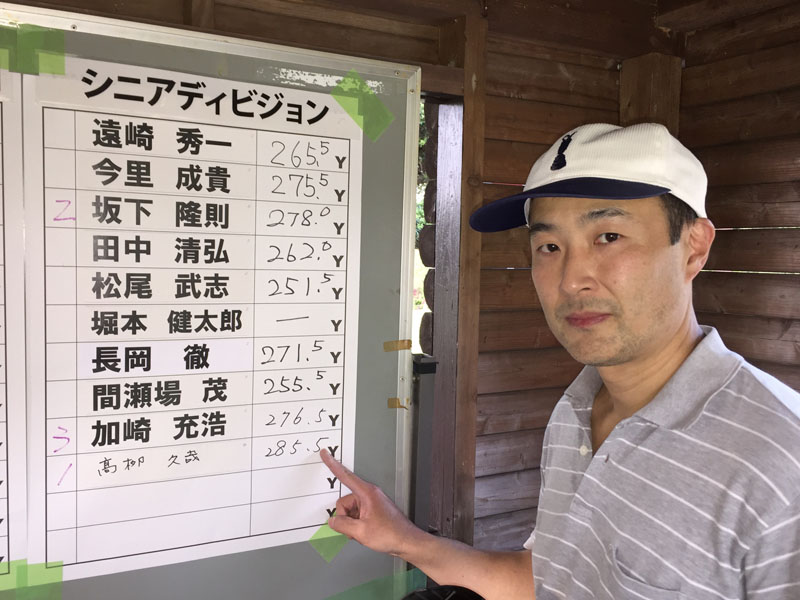 シニアディビジョン
遠崎 秀一 265.5 Y
今里 成貴 275.5 Y
2 坂下 隆則 278.0 Y
田中 清弘 262.0 Y
松尾 武志 251.5 Y
堀本 健太郎 — Y
長岡 徹 271.5 Y
間瀬場 茂 255.5 Y
3 加崎 充浩 276.5 Y
1 高柳 久哉 285.5 Y
Y
Y